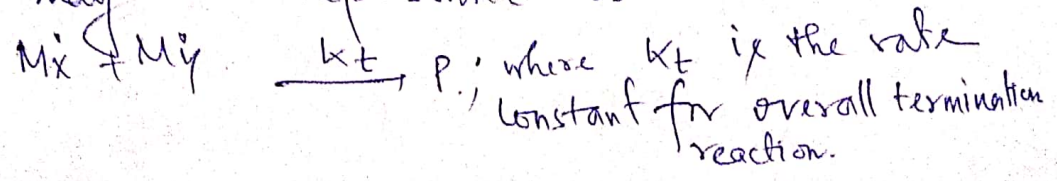 Mẋ + Mẏ —kt→ P.; where kt is the rate
constant for overall termination
reaction.